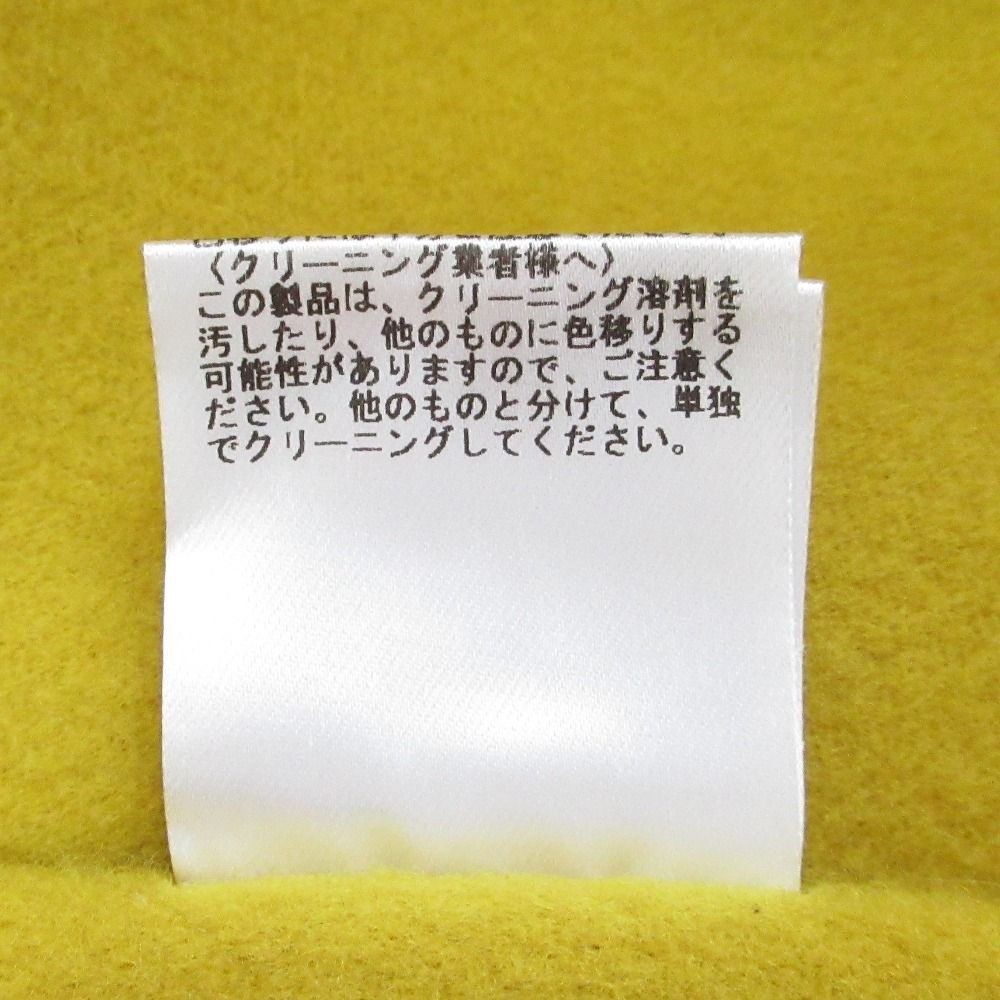 〈クリーニング業者様へ〉
この製品は、クリーニング溶剤を
汚したり、他のものに色移りする
可能性がありますので、ご注意く
ださい。他のものと分けて、単独
でクリーニングしてください。